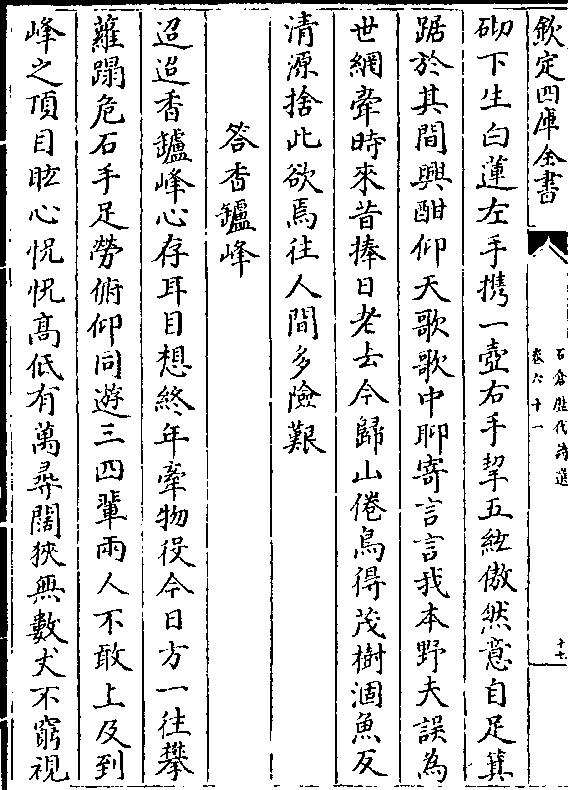 欽定四庫全書
石倉歷代詩選
卷六十一
十七
砌下生白蓮左手攜一壺右手挈五絃傲然意自足箕
踞於其間興酣仰天歌歌中聊寄言言我本野夫誤為
世網牽時來昔捧日老去今歸山倦鳥得茂樹涸魚反
清源捨此欲焉往人間多險艱
答香鑪峰
迢迢香鑪峰心存耳目想終年牽物役今日方一往攀
蘿蹋危石手足勞俯仰同遊三四輩兩人不敢上及到
峰之頂目眩心怳怳高低有萬尋闊狹無數丈不窮視